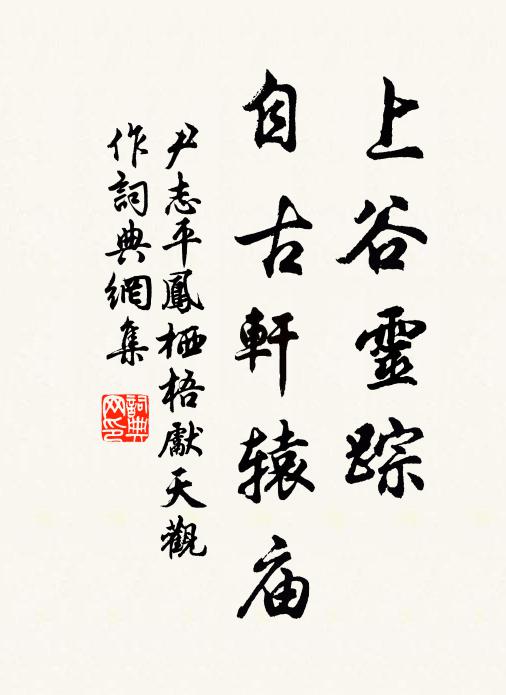 上谷靈踪
自古軒辕庙
尹志平鳳栖梧獻天觀
作詞典網集
詞典网印